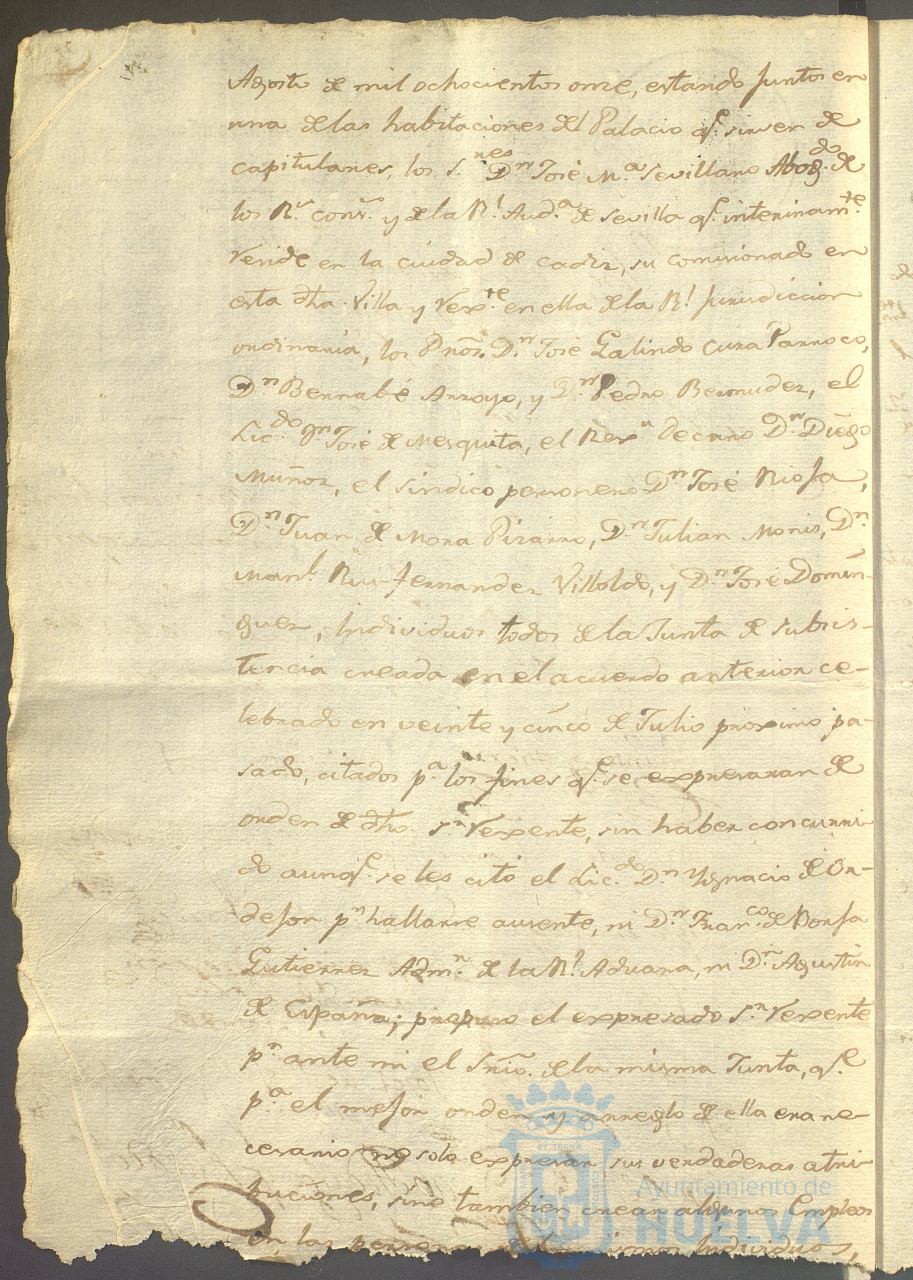 Agosto de mil ochocientos once, estando juntos en
una de las habitaciones del Palacio q.e sirven de
capitulares, los S.nes D.n José M.a Sevillano Abog.do de
los R.s cons.s y de la R.l Aud.a de Sevilla q.e interinam.te
reside en la ciudad de Cadiz, su comisionado en
esta dha. Villa y Rex.te en ella de la R.l Jurisdiccion
ordinaria, los Pros. D.n José Galindo Cura Parroco,
D.n Bernabé Arroyo, y D.n Pedro Bermudez, el
Lic.do D.n José de Mesquita, el Rex.r Decano D.n Diego
Muñoz, el sindico personero D.n José Rioja,
D.n Juan de Mora Pizarro, D.n Julian Monis, D.n
Man.l Rui-fernandez Villoldo, y D.n José Domin-
guez, Individuos todos de la Junta de subsis-
tencia creada en el acuerdo anterior ce-
lebrado en veinte y cinco de Julio proximo pa-
sado, citados p.a los fines q.e se expresaran de
orden de dho. S.r Rexente, sin haber concurri-
do aunq.e se les citó el Lic.do D.n Ygnacio de Or-
dejon p.r hallarse ausente, ni D.n Fran.co de Borja
Gutierrez Adm.r de la R.l Aduana, ni D.n Agustin
de España; propuso el expresado S.r Rexente
p.r ante mi el Sñio. de la misma Junta, q.e
p.a el mejor orden y arreglo de ella era ne-
cesario no solo expresar sus verdaderas atri-
buciones, sino tambien crear algunos Empleos
en las Individuos,
Ayuntamiento de
HUELVA